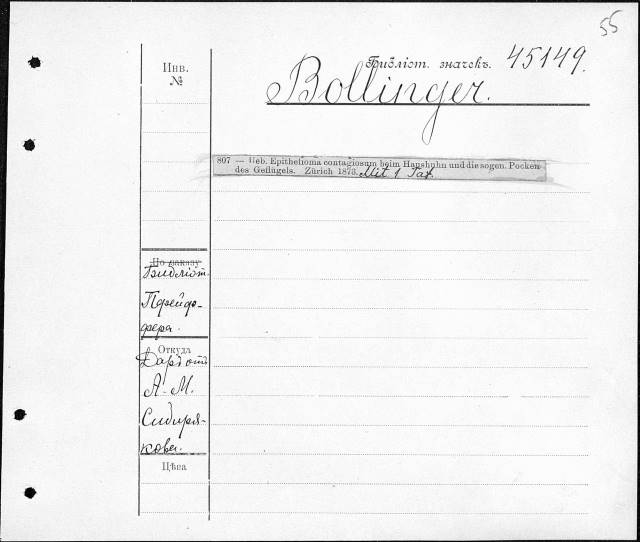 55
Инв.
№
Библіот. значекъ.
45149.
Bollinger.
807 — Ueb. Epithelioma contagiosum beim Haushuhn und die sogen. Pocken
des Geflügels. Zürich 1873. Mit 1 Taf.
По заказу
Библіот.
Пфейф-
фера.
Откуда
Даръ отъ
А. М.
Сибиря-
кова.
Цѣна